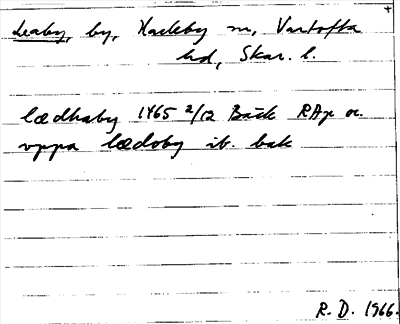 Leaby, by, Karleby sn, Vartofta
hd, Skar. l.
lædhaby 1465 2/12 Bäck RAp or.
vppa lædoby ib. bak
R. D. 1966.